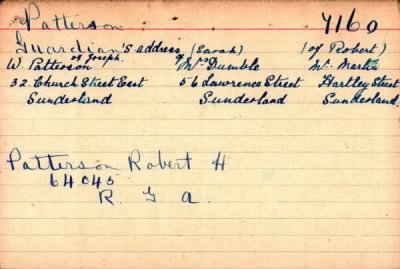 Patterson 7160
Guardian's address (Sarah) (of Robert)
of Joseph.
W. Patterson of Mrs Dumble Mr. Martin
32. Church Street East 56 Lawrence Street Hartley Street
Sunderland Sunderland Sunderland.
Patterson Robert H
64045
R. G A.